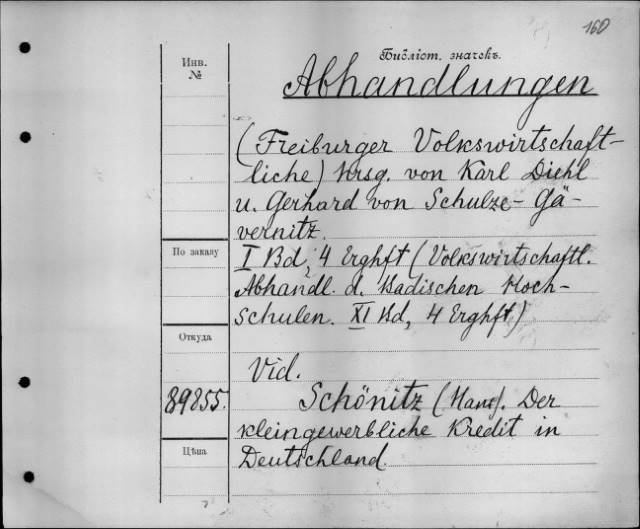 160
Библіот. значекъ.
Инв.
№
Abhandlungen
(Freiburger Volkswirtschaft-
liche) Hrsg. von Karl Diehl
u. Gerhard von Schulze-Gä-
vernitz.
По заказу
I Bd, 4 Erghft (Volkswirtschaftl.
Abhandl. d. Badischen Hoch-
schulen. XI Bd, 4 Erghft)
Откуда
Vid.
89855.
Schönitz (Hans). Der
kleingewerbliche Kredit in
Цѣна
Deutschland.